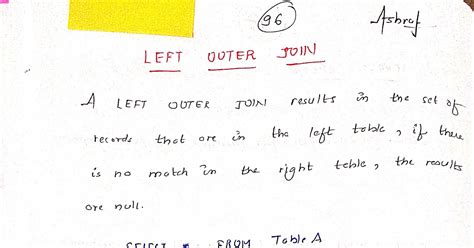 96
Ashraf
LEFT OUTER JOIN
A LEFT OUTER JOIN results in the set of
records that are in the left table, if there
is no match in the right table, the results
are null.
SELECT * FROM Table A